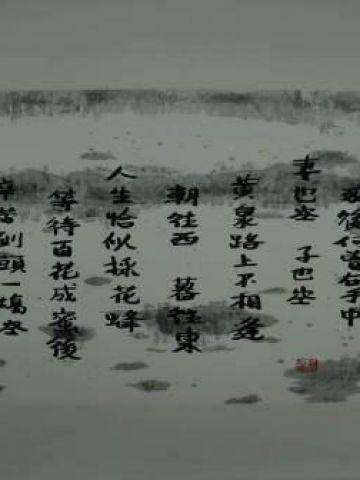 後何曾在手中
妻也空 子也空
黃泉路上不相逢
朝往西 暮往東
人生恰似採花蜂
等待百花成蜜後
辛苦到頭一場空